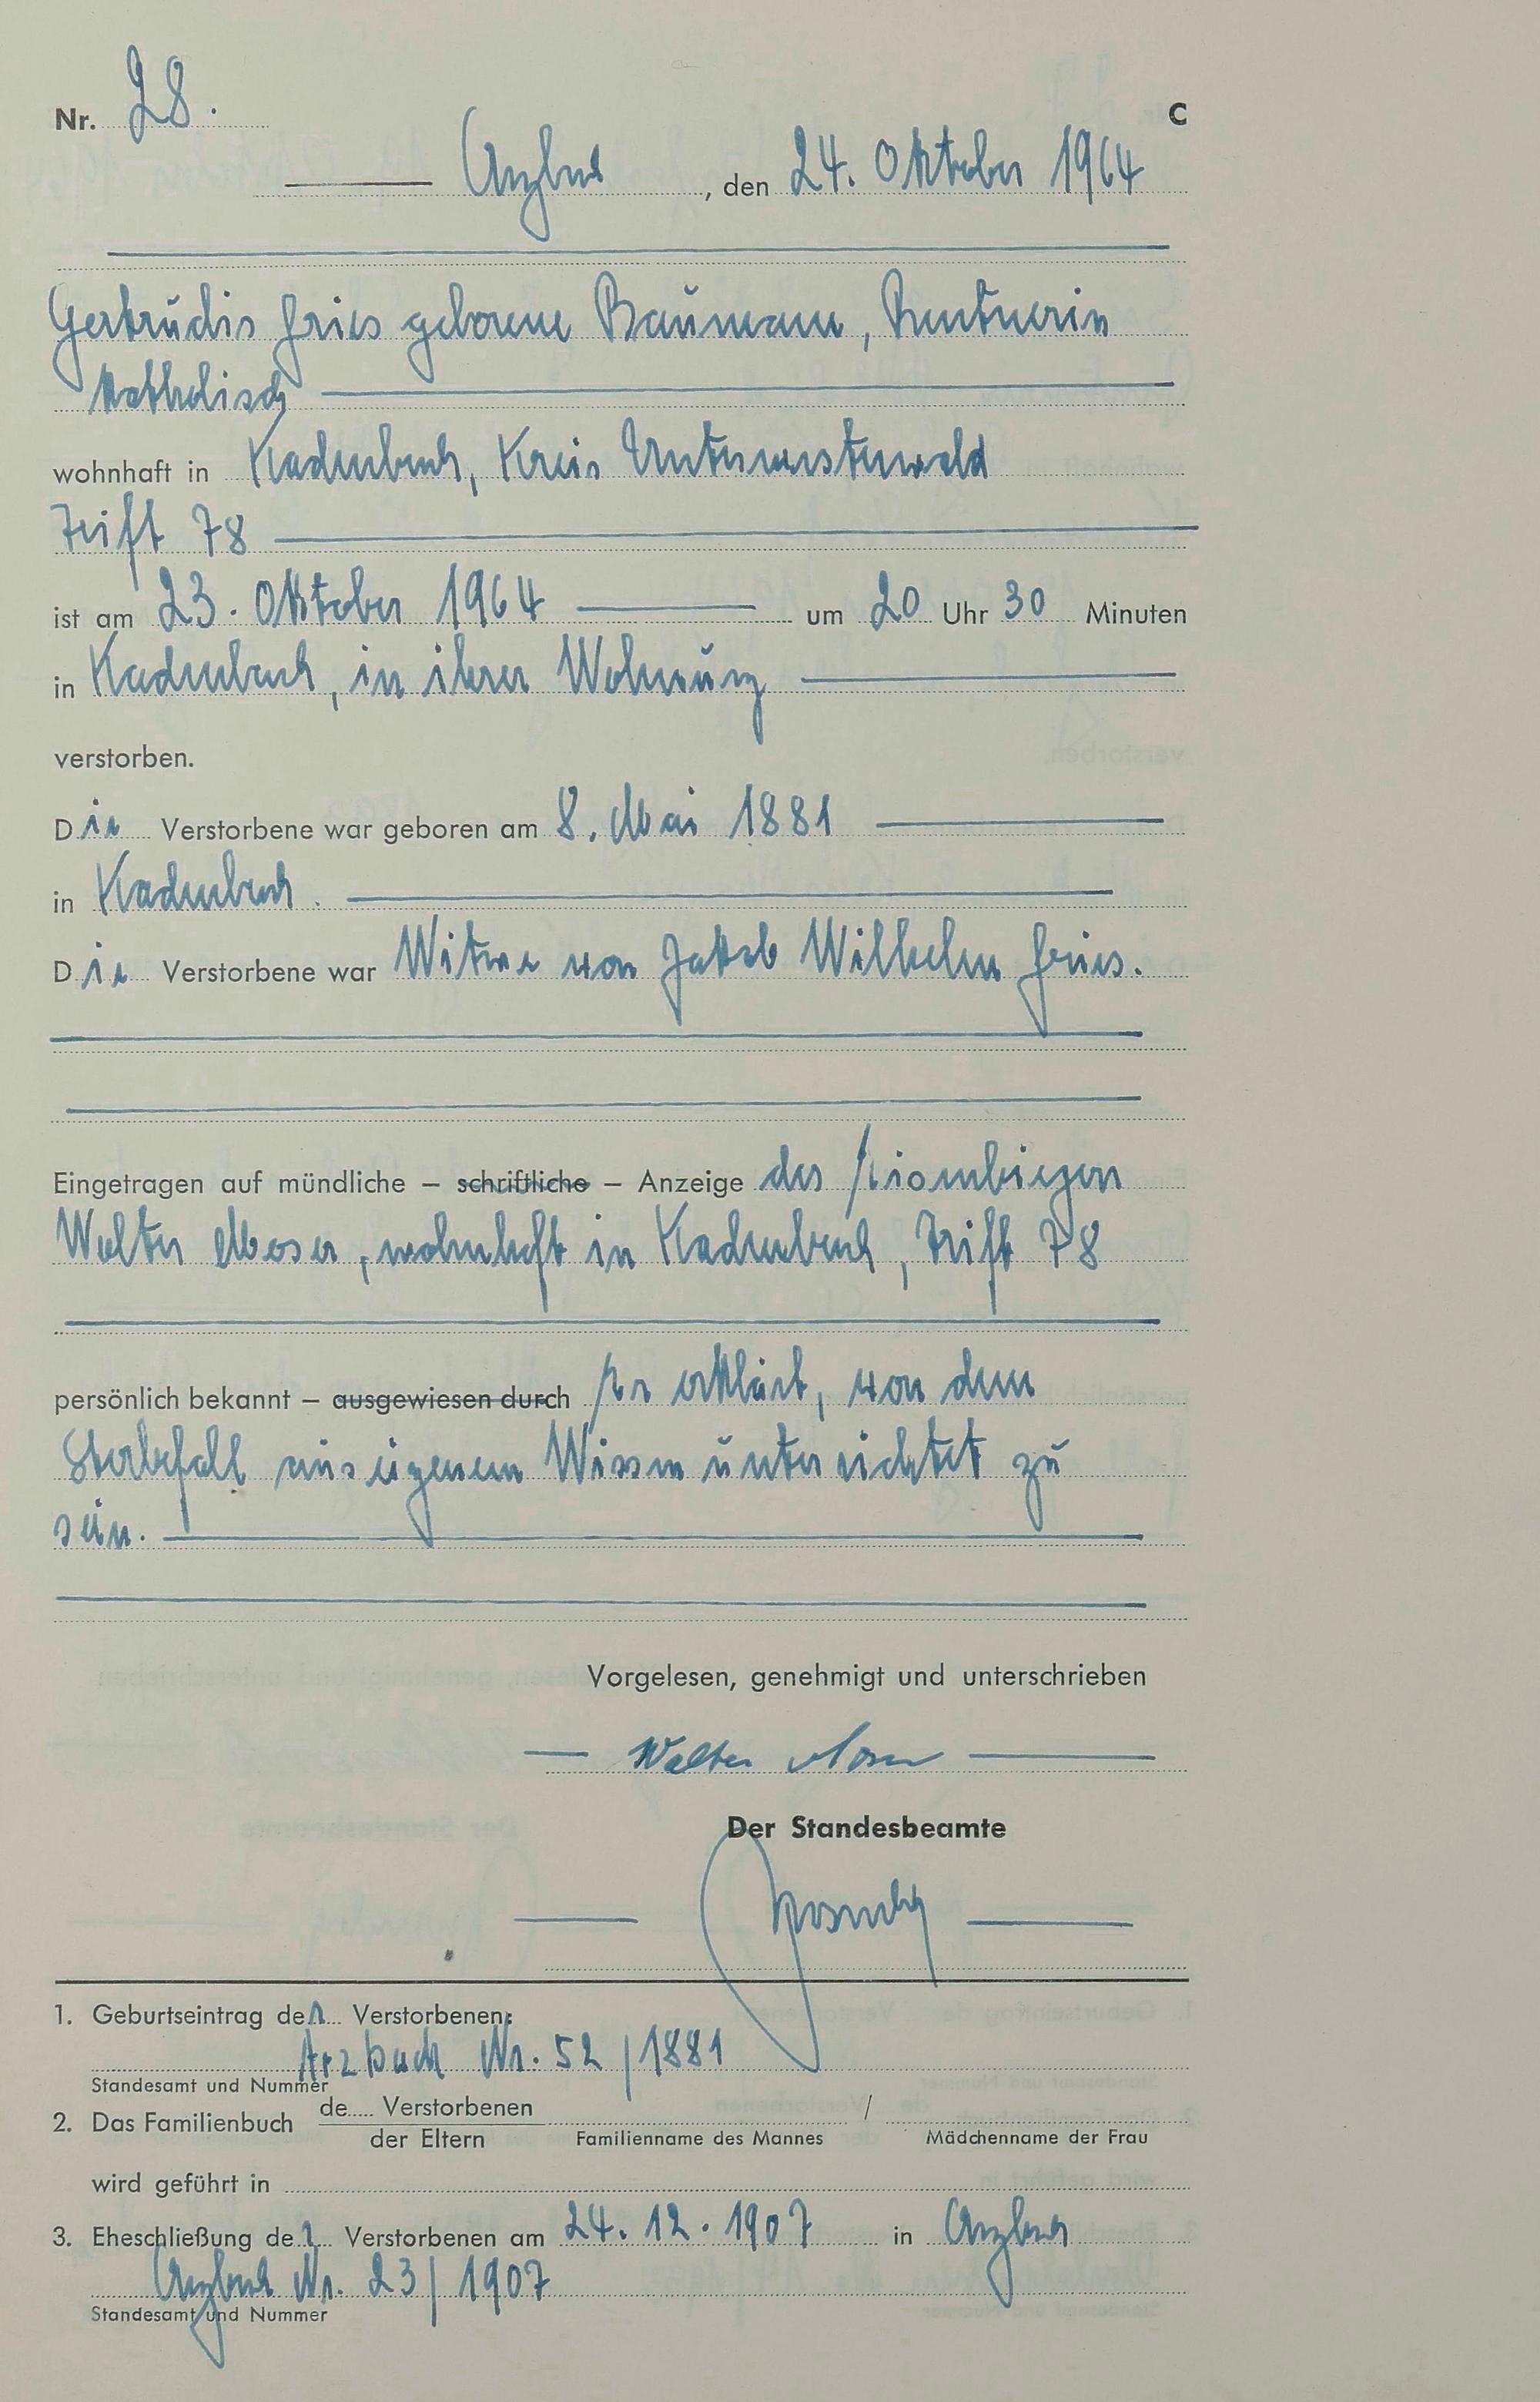 Nr. 28. C
Arzbach, den 24. Oktober 1964
Gertrudis Fries geborene Baumann, Rentnerin
katholisch
wohnhaft in Kadenbach, Kreis Unterwesterwald
Trift 78
ist am 23. Oktober 1964 um 20 Uhr 30 Minuten
in Kadenbach, in ihrer Wohnung
verstorben.
Die Verstorbene war geboren am 8. Mai 1881
in Kadenbach.
Die Verstorbene war Witwe von Jakob Wilhelm Fries.
Eingetragen auf mündliche – schriftliche – Anzeige des
Walter Moser, wohnhaft in Kadenbach, Trift 78
persönlich bekannt – ausgewiesen durch Er erklärt, von dem
Sterbefall aus eigenem Wissen unterrichtet zu
sein.
Vorgelesen, genehmigt und unterschrieben
Walter Moser
Der Standesbeamte
1. Geburtseintrag der Verstorbenen:
Arzbach Nr. 52/1881
Standesamt und Nummer
2. Das Familienbuch de..... Verstorbenen /
der Eltern Familienname des Mannes Mädchenname der Frau
wird geführt in
3. Eheschließung der Verstorbenen am 24.12.1907 in Arzbach
Arzbach Nr. 23/1907
Standesamt und Nummer